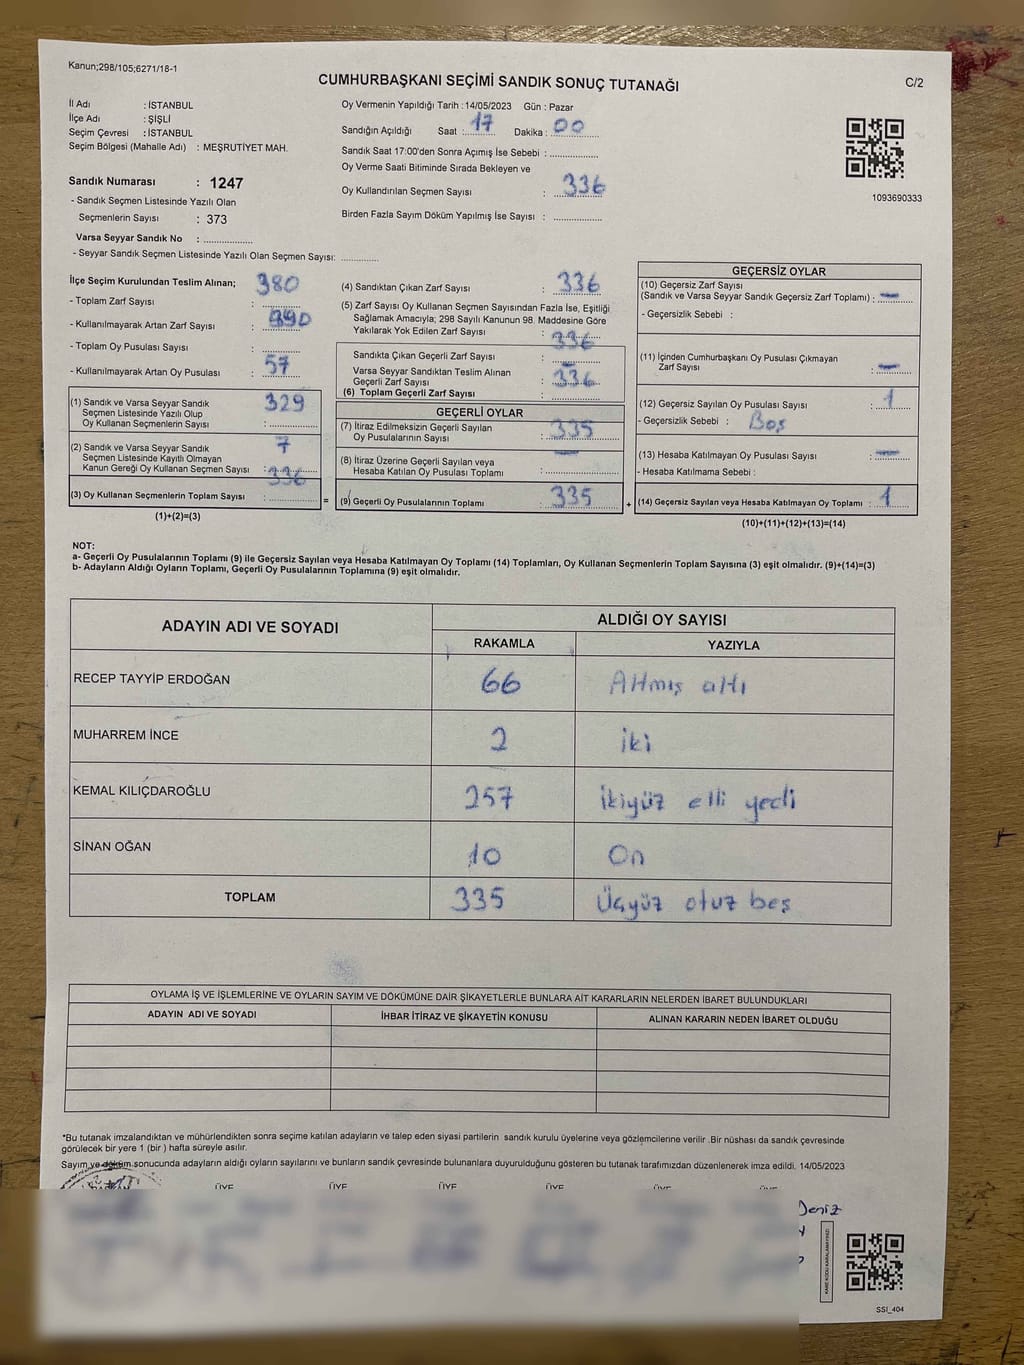 Kanun;298/105;6271/18-1
CUMHURBAŞKANI SEÇİMİ SANDIK SONUÇ TUTANAĞI
C/2
İl Adı : İSTANBUL
İlçe Adı : ŞİŞLİ
Seçim Çevresi : İSTANBUL
Seçim Bölgesi (Mahalle Adı) : MEŞRUTİYET MAH.
Sandık Numarası : 1247
- Sandık Seçmen Listesinde Yazılı Olan
Seçmenlerin Sayısı : 373
Varsa Seyyar Sandık No : ..............
- Seyyar Sandık Seçmen Listesinde Yazılı Olan Seçmen Sayısı: ............
Oy Vermenin Yapıldığı Tarih : 14/05/2023 Gün : Pazar
Sandığın Açıldığı Saat : 17 Dakika : 00
Sandık Saat 17:00'den Sonra Açımış İse Sebebi : ..............
Oy Verme Saati Bitiminde Sırada Bekleyen ve
Oy Kullandırılan Seçmen Sayısı : 336
Birden Fazla Sayım Döküm Yapılmış İse Sayısı : ..............
1093690333
İlçe Seçim Kurulundan Teslim Alınan; 380
- Toplam Zarf Sayısı :
- Kullanılmayarak Artan Zarf Sayısı : 390
- Toplam Oy Pusulası Sayısı :
- Kullanılmayarak Artan Oy Pusulası : 57
(1) Sandık ve Varsa Seyyar Sandık 329
Seçmen Listesinde Yazılı Olup
Oy Kullanan Seçmenlerin Sayısı :
(2) Sandık ve Varsa Seyyar Sandık 7
Seçmen Listesinde Kayıtlı Olmayan
Kanun Gereği Oy Kullanan Seçmen Sayısı :
336
(3) Oy Kullanan Seçmenlerin Toplam Sayısı : =
(1)+(2)=(3)
(4) Sandıktan Çıkan Zarf Sayısı : 336
(5) Zarf Sayısı Oy Kullanan Seçmen Sayısından Fazla İse, Eşitliği
Sağlamak Amacıyla; 298 Sayılı Kanunun 98. Maddesine Göre
Yakılarak Yok Edilen Zarf Sayısı :
336
Sandıkta Çıkan Geçerli Zarf Sayısı :
Varsa Seyyar Sandıktan Teslim Alınan
Geçerli Zarf Sayısı : 336
(6) Toplam Geçerli Zarf Sayısı :
GEÇERLİ OYLAR
(7) İtiraz Edilmeksizin Geçerli Sayılan
Oy Pusulalarının Sayısı : 335
(8) İtiraz Üzerine Geçerli Sayılan veya —
Hesaba Katılan Oy Pusulası Toplamı :
(9) Geçerli Oy Pusulalarının Toplamı : 335 +
GEÇERSİZ OYLAR
(10) Geçersiz Zarf Sayısı
(Sandık ve Varsa Seyyar Sandık Geçersiz Zarf Toplamı) : —
- Geçersizlik Sebebi :
(11) İçinden Cumhurbaşkanı Oy Pusulası Çıkmayan
Zarf Sayısı : —
(12) Geçersiz Sayılan Oy Pusulası Sayısı : 1
- Geçersizlik Sebebi : Boş
(13) Hesaba Katılmayan Oy Pusulası Sayısı : —
- Hesaba Katılmama Sebebi :
(14) Geçersiz Sayılan veya Hesaba Katılmayan Oy Toplamı : 1
(10)+(11)+(12)+(13)=(14)
NOT:
a- Geçerli Oy Pusulalarının Toplamı (9) ile Geçersiz Sayılan veya Hesaba Katılmayan Oy Toplamı (14) Toplamları, Oy Kullanan Seçmenlerin Toplam Sayısına (3) eşit olmalıdır. (9)+(14)=(3)
b- Adayların Aldığı Oyların Toplamı, Geçerli Oy Pusulalarının Toplamına (9) eşit olmalıdır.
ADAYIN ADI VE SOYADI
ALDIĞI OY SAYISI
RAKAMLA YAZIYLA
RECEP TAYYİP ERDOĞAN 66 Altmış altı
MUHARREM İNCE 2 iki
KEMAL KILIÇDAROĞLU 257 ikiyüz elli yedi
SİNAN OĞAN 10 On
TOPLAM 335 Üçyüz otuz beş
OYLAMA İŞ VE İŞLEMLERİNE VE OYLARIN SAYIM VE DÖKÜMÜNE DAİR ŞİKAYETLERLE BUNLARA AİT KARARLARIN NELERDEN İBARET BULUNDUKLARI
ADAYIN ADI VE SOYADI İHBAR İTİRAZ VE ŞİKAYETİN KONUSU ALINAN KARARIN NEDEN İBARET OLDUĞU
*Bu tutanak imzalandıktan ve mühürlendikten sonra seçime katılan adayların ve talep eden siyasi partilerin sandık kurulu üyelerine veya gözlemcilerine verilir .Bir nüshası da sandık çevresinde
görülecek bir yere 1 (bir ) hafta süreyle asılır.
Sayım ve döküm sonucunda adayların aldığı oyların sayılarını ve bunların sandık çevresinde bulunanlara duyurulduğunu gösteren bu tutanak tarafımızdan düzenlenerek imza edildi. 14/05/2023
ÜYE ÜYE ÜYE ÜYE ÜYE
Deniz
KARE KODU KARALAMAYINIZ!
SSI_404